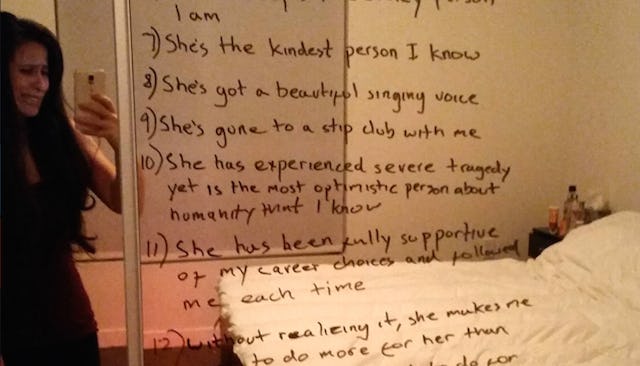 person
I am
7) She's the kindest person I know
8) She's got a beautiful singing voice
9) She's gone to a stip club with me
10) She has experienced severe tragedy
yet is the most optimistic person about
humanity that I know
11) She has been fully supportive
of my career choices and followed
me each time
12) Without realizing it, she makes me
to do more for her than